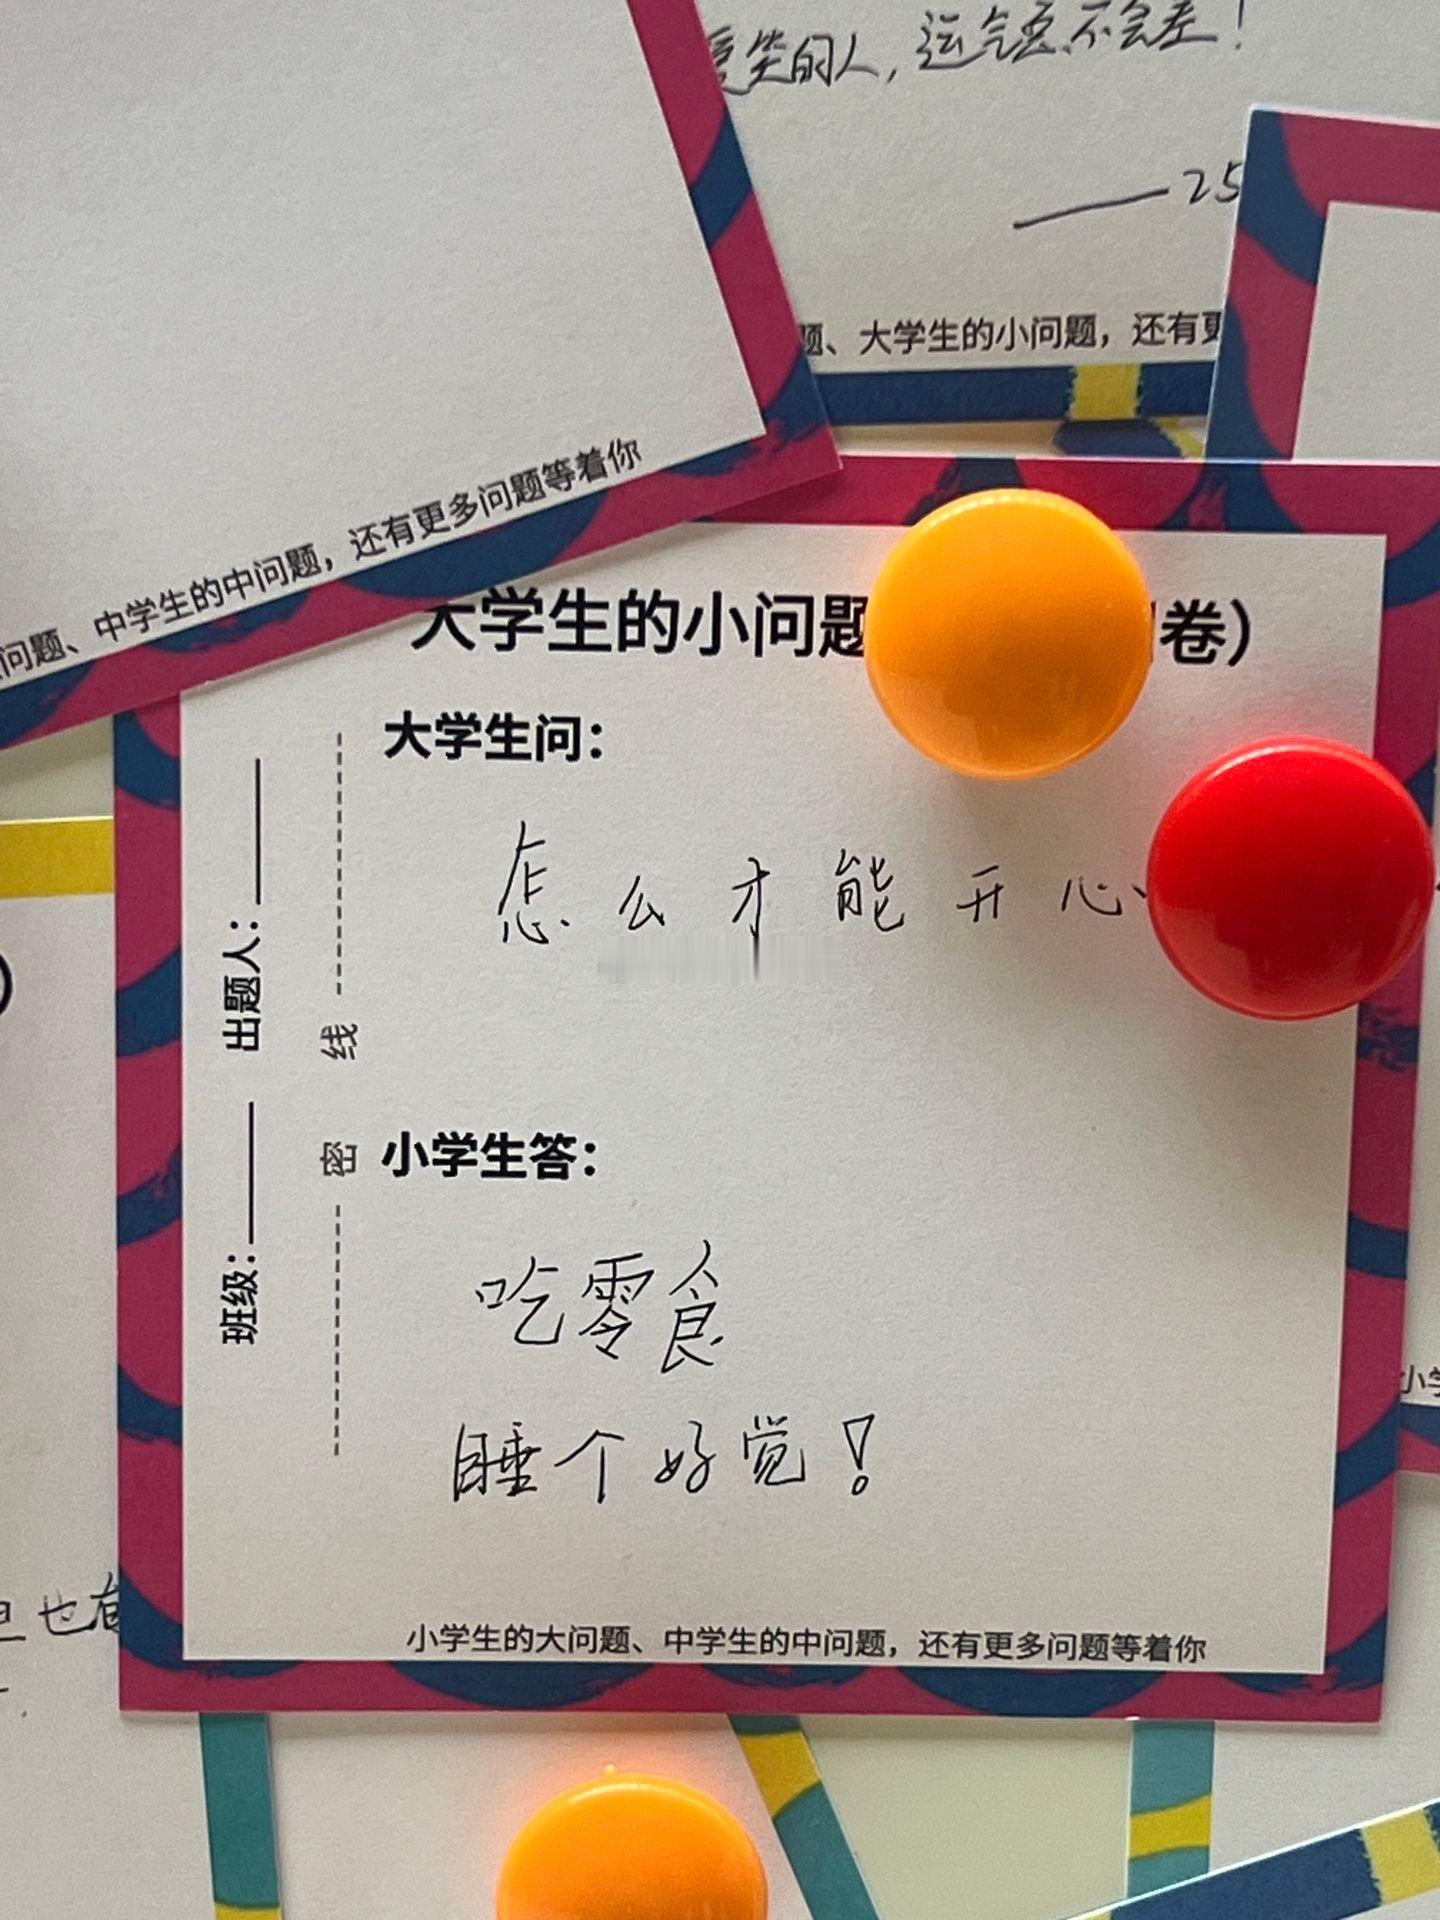 爱笑的人，运气豆不会差！
——25
题、大学生的小问题，还有更
问题、中学生的中问题，还有更多问题等着你
大学生的小问题
卷）
大学生问：
怎么才能开心
出题人：
班级：
线
密
小学生答：
吃零食
睡个好觉！
小学生的大问题、中学生的中问题，还有更多问题等着你
小学
也有